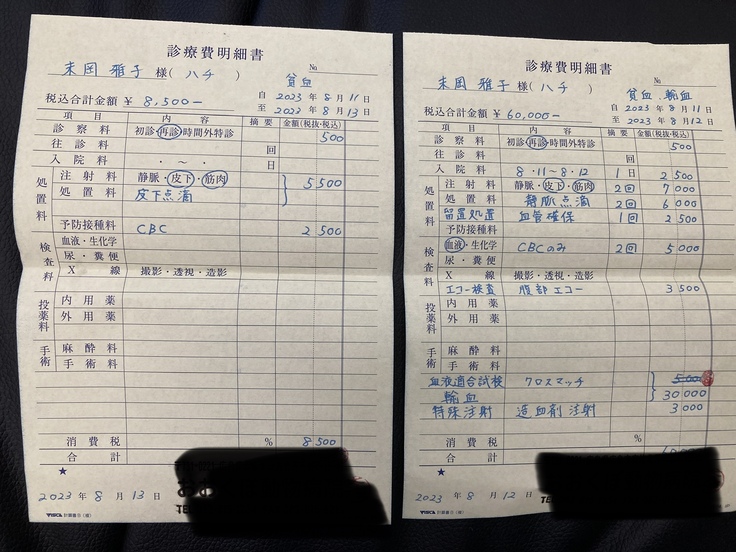 診療費明細書
末岡 雅子 様( ハチ ) №
貧血
自 2023 年 8 月 11 日
税込合計金額 ¥ 8,500-
至 2023 年 8 月 13 日
項目 内容 摘要 金額(税抜・税込)
診察料 初診・再診・時間外特診 500
往診料 回
入院料 ・ ~ ・ 日
処置料
注射料 静脈・皮下・筋肉 5500
処置料 皮下点滴
予防接種料 CBC 2500
検査料
血液・生化学
尿・糞便
X線 撮影・透視・造影
投薬料
内用薬
外用薬
手術
麻酔料
手術料
消費税 % 8500
合計
★
2023 年 8 月 13 日
診療費明細書
末岡 雅子 様( ハチ ) №
貧血 輸血
自 2023 年 8 月 11 日
税込合計金額 ¥ 60,000-
至 2023 年 8 月 12 日
項目 内容 摘要 金額(税抜・税込)
診察料 初診・再診・時間外特診 500
往診料 回
入院料 8・11~8・12 1日 2500
処置料
注射料 静脈・皮下・筋肉 2回 7000
処置料 静脈点滴 2回 6000
留置処置 血管確保 1回 2500
予防接種料
検査料
血液・生化学 CBCのみ 2回 5000
尿・糞便
X線 撮影・透視・造影
エコー検査 腹部エコー 3500
投薬料
内用薬
外用薬
手術
麻酔料
手術料
血液適合試検 クロスマッチ 500
輸血 30000
特殊注射 造血剤 注射 3000
消費税 %
合計
★
2023 年 8 月 12 日